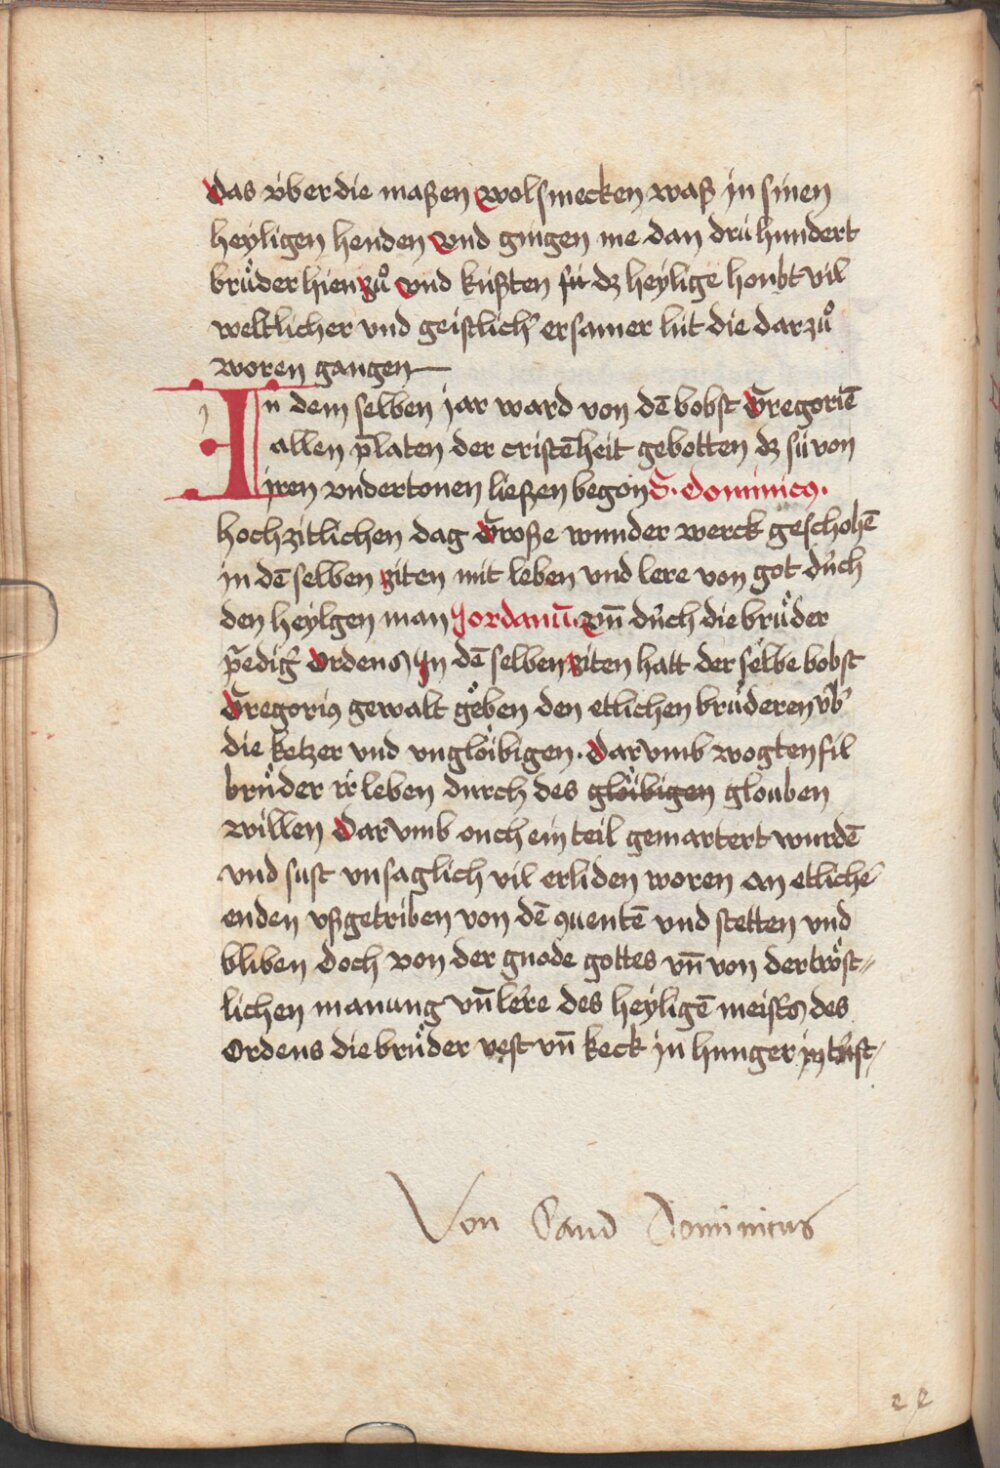 das v́ber die maßen wolsmecken waß jn sinen
heyligen henden vnd gingen me dan drú hundert
brůder hien zů vnd kußten sú dz heylige houbt vil
weltlicher vnd geistlich̕ ersamer lút die dar zů
woren gangen
In dem selben jar ward von dē bobst Gregoriē
allen p̄laten der cristēheit gebotten dz sú von
jren vndertonen ließen begon S. dominicꝰ.
hochzitlichen dag Große wunder werck geschohē
jn dē selben ziten mit leben vnd lere von got du̕ch
den heylgen man Jordanū. vn̄ du̕ch die brůder
p̄edig̕ Ordens Jn dē selben ziten hatt der selbe bobst
Gregoriꝰ gewalt geben den etlichen brůderen v́b̕
die ketzer vnd vngloibigen. Dar vmb wogten fil
brůder ir leben durch des gloibigen glouben
willen Dar vmb ouch ein teil gemartert wurdē
vnd sust vnsaglich vil erliden woren an etlichē
enden vßgetriben von dē ꝯuentē vnd stetten vnd
bliben doch von der gnode gottes vn̄ von der tröst⸗
lichen manung vn̄ lere des heyligē meist̕s des
Ordens die brůder vest vn̄ keck jn hunger jn turst⸗
Von Sand Dominicus